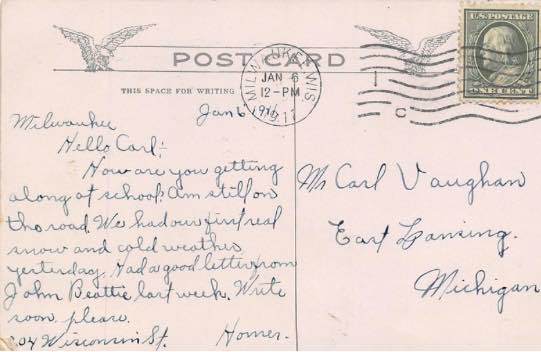 POST CARD
THIS SPACE FOR WRITING
MILWAUKEE, WIS
JAN 6
12-PM
1911
C
U.S. POSTAGE
ONE CENT
Jan 6, 1911
Milwaukee
Hello Carl:-
How are you getting
along at school? Am still on
the road. We had our first real
snow and cold weather
yesterday. Had a good letter from
John Beattie last week. Write
soon please.
204 Wisconsin St. Homer.
Mr Carl Vaughan
East Lansing.
Michigan